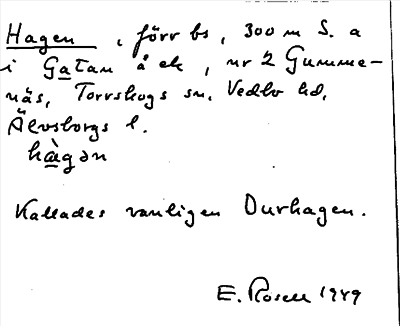 Hagen, förr bs, 300 m S. a
i Gatan å ek, nr 2 Gumme-
näs, Torrskogs sn, Vedbo hd,
Älvsborgs l.
hàgən
Kallades vanligen Durhagen.
E. Rosell 1949